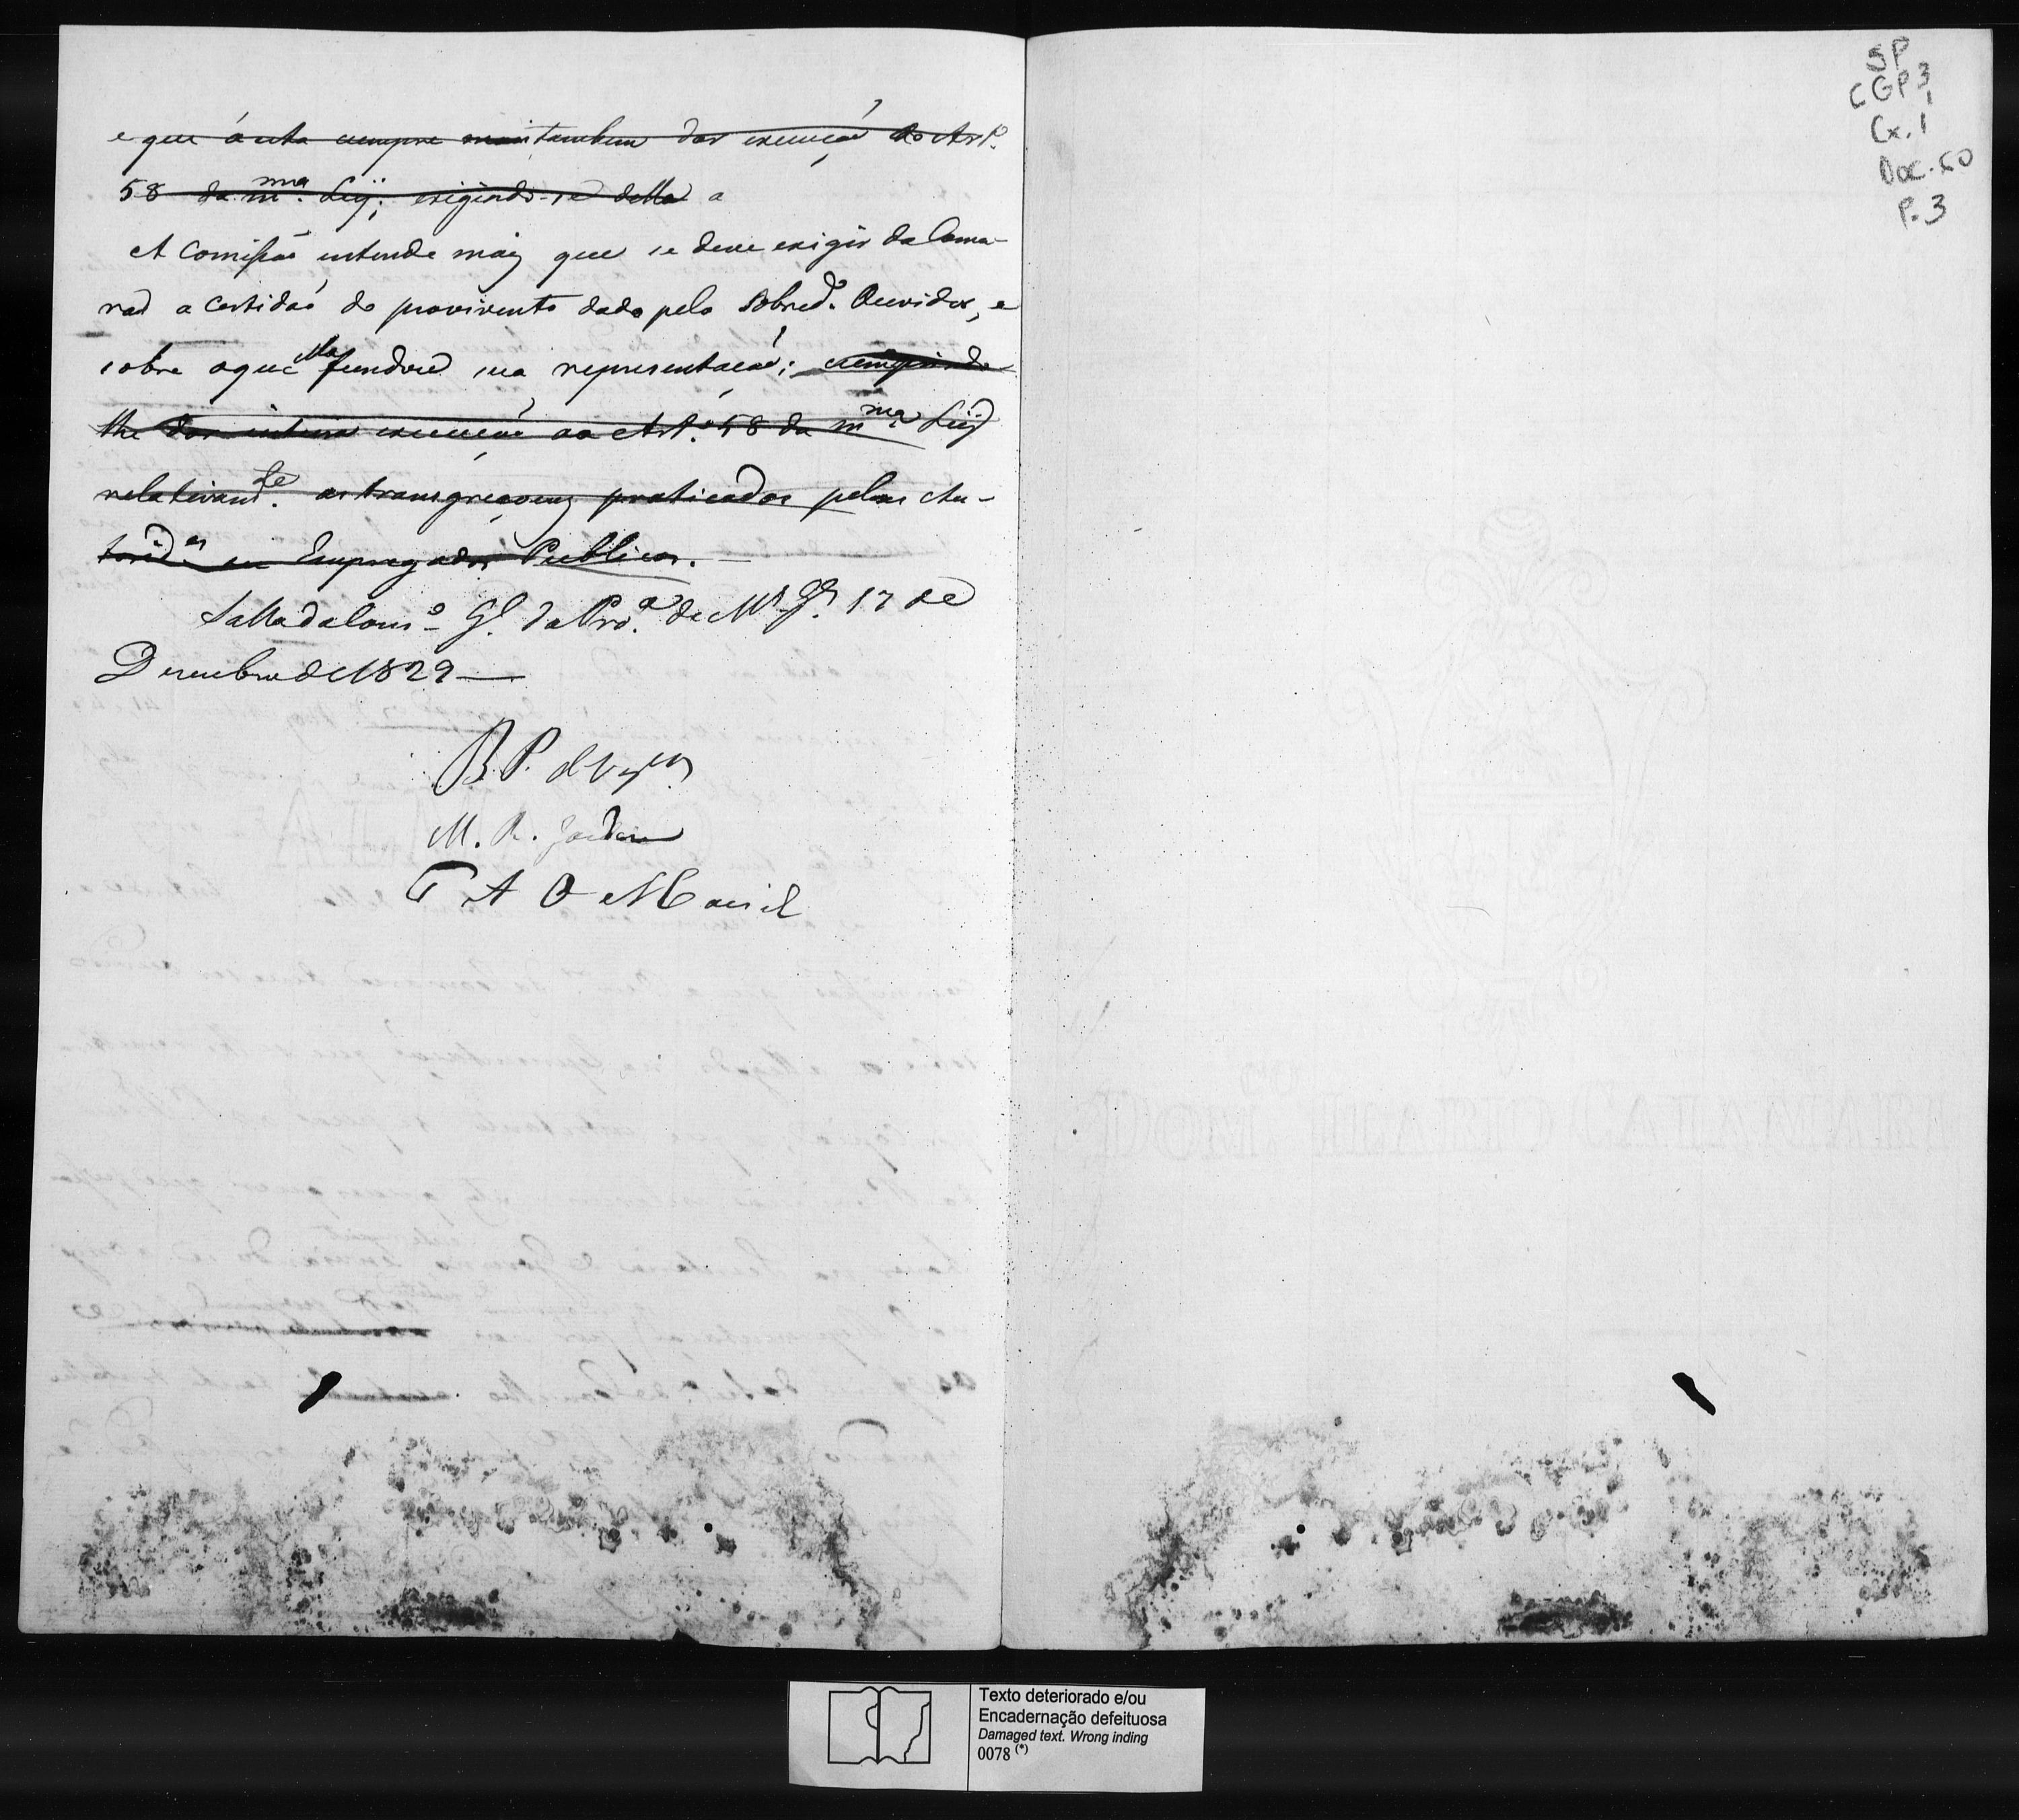 e que á esta cumpre mais tambem dar execução ao Art.º
58 da m.ma Ley; exigindo-se della a
A Comissão entende mais que se deve exigir da Cama-
ra a Certidão do provimento dado pelo Sobred.º Ouvidor, e
sobre o que Ella fundou sua representação; cumprindo
lhe dar inteira execução ao Art.º 58 da m.ma Ley
relativam.te as transgreçoens praticadas pelas Au-
torid.es ou Empregados Publicos. —
Salla do Cons.º G.l da Pro.a de M.s G.s 17 de
Dezembro de 1829 —
B. P. de Vas.cos
M. R. Jardim
T A O Maciel
SP
CGP 3
Cx. 1
Doc. 50
P. 3
Texto deteriorado e/ou
Encadernação defeituosa
Damaged text. Wrong inding
0078 (*)